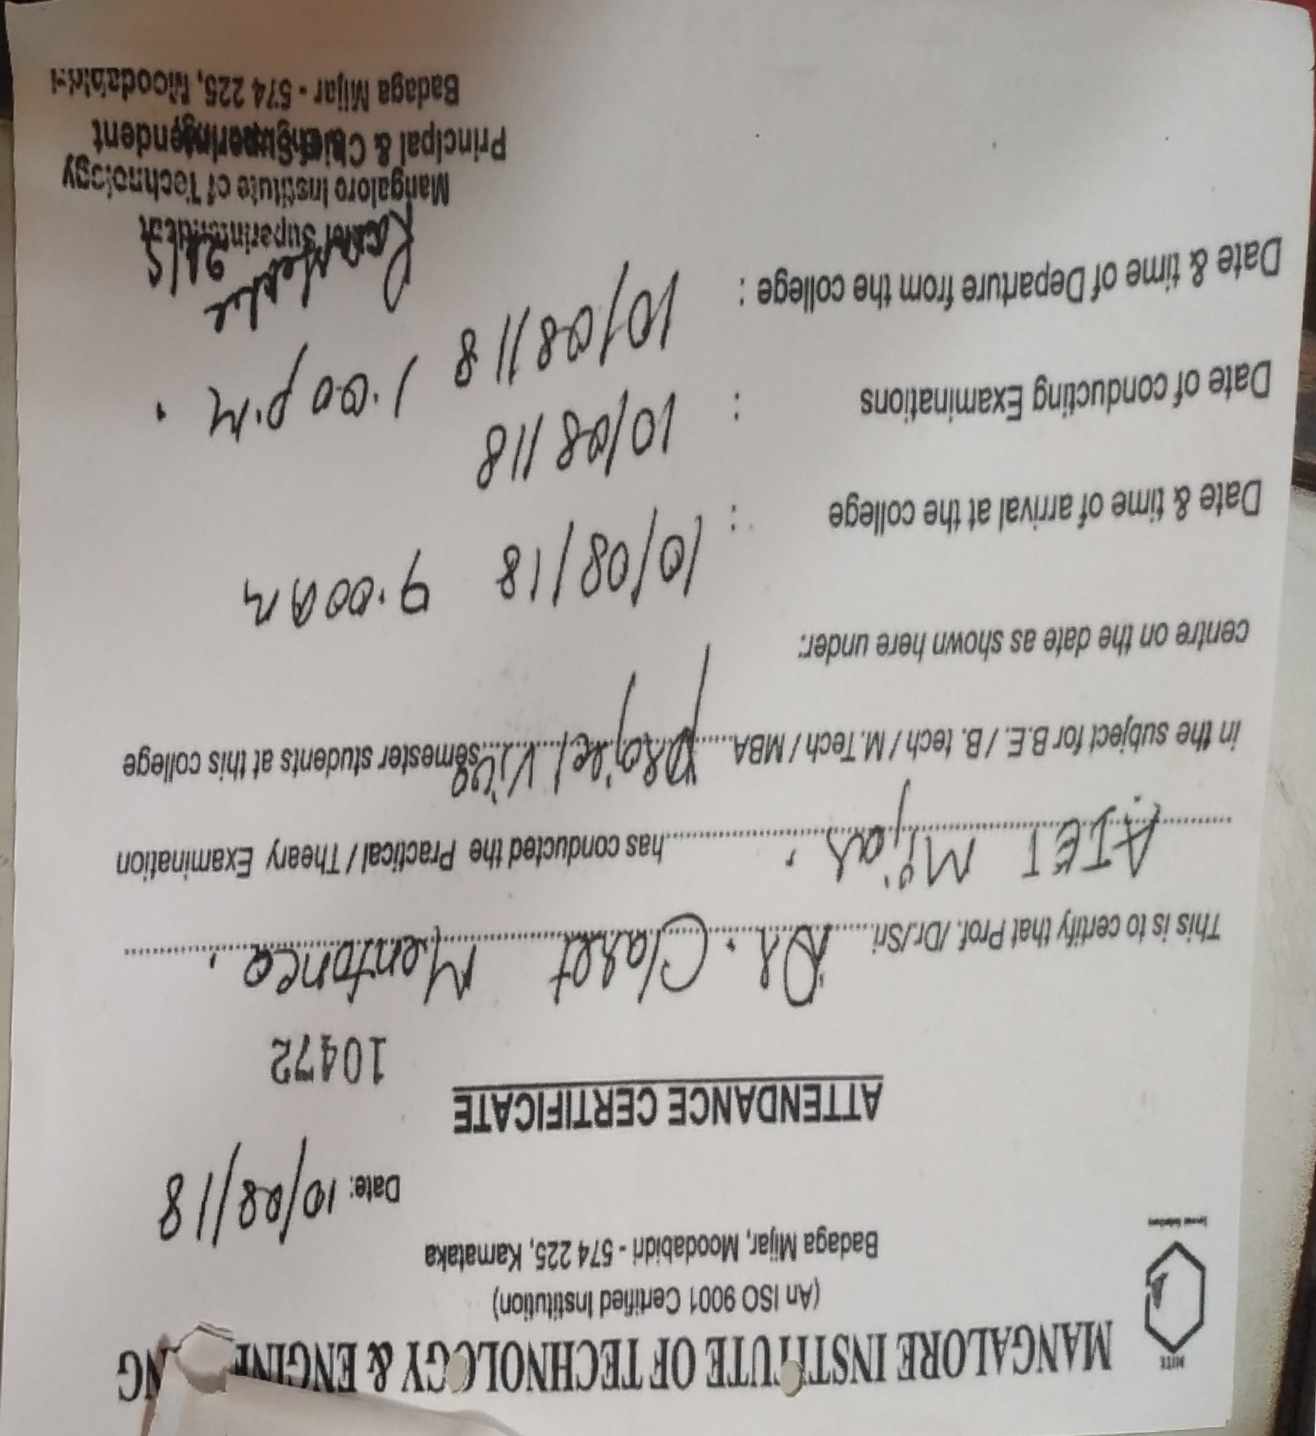 MITE
MANGALORE INSTITUTE OF TECHNOLOGY & ENGINE NG
(An ISO 9001 Certified Institution)
Badaga Mijar, Moodabidri - 574 225, Karnataka
Date: 10/08/18
ATTENDANCE CERTIFICATE
10472
This is to certify that Prof. /Dr./Sri Dr. Claret Mendonca.
AIET Mijar. has conducted the Practical / Theary Examination
in the subject for B.E. / B. tech / M.Tech / MBA project Viva semester students at this college
centre on the date as shown here under:
Date & time of arrival at the college : 10/08/18 9.00 AM
Date of conducting Examinations : 10/08/18
Date & time of Departure from the college : 10/08/18 1.00 p.m.
Superintendent
Mangalore Institute of Technology
Principal & Chief Superintendent
Badaga Mijar - 574 225, Moodabidri